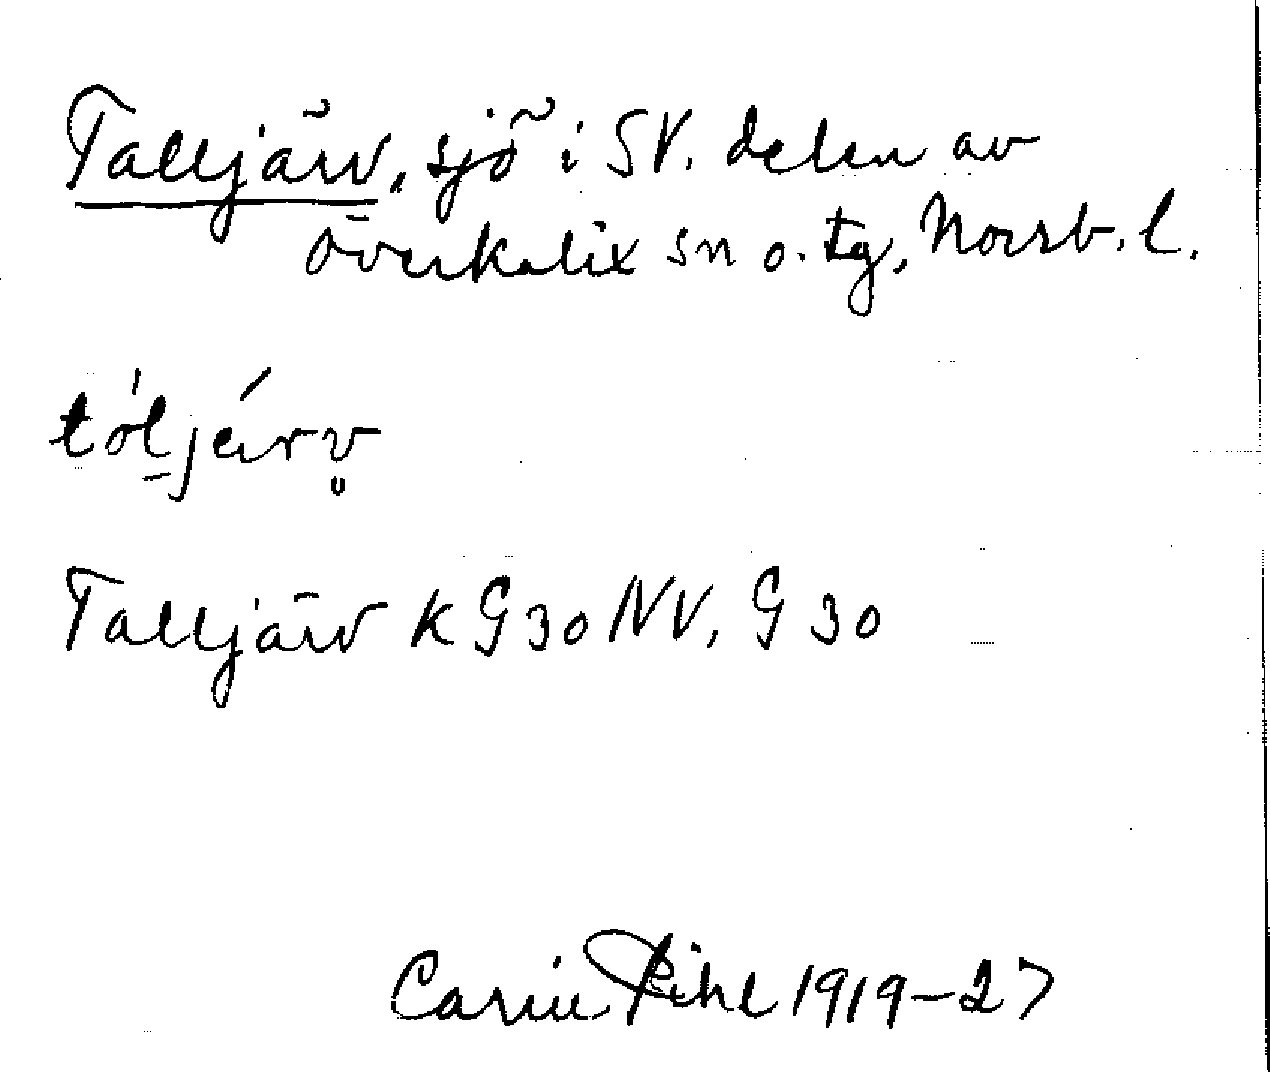 Talljärv, sjö i SV. delen av
Överkalix sn o. tg, Norrb. l.
tól̠jä́rv̥
Talljärv K G 30 NV, G 30
Carin Pihl 1919–27